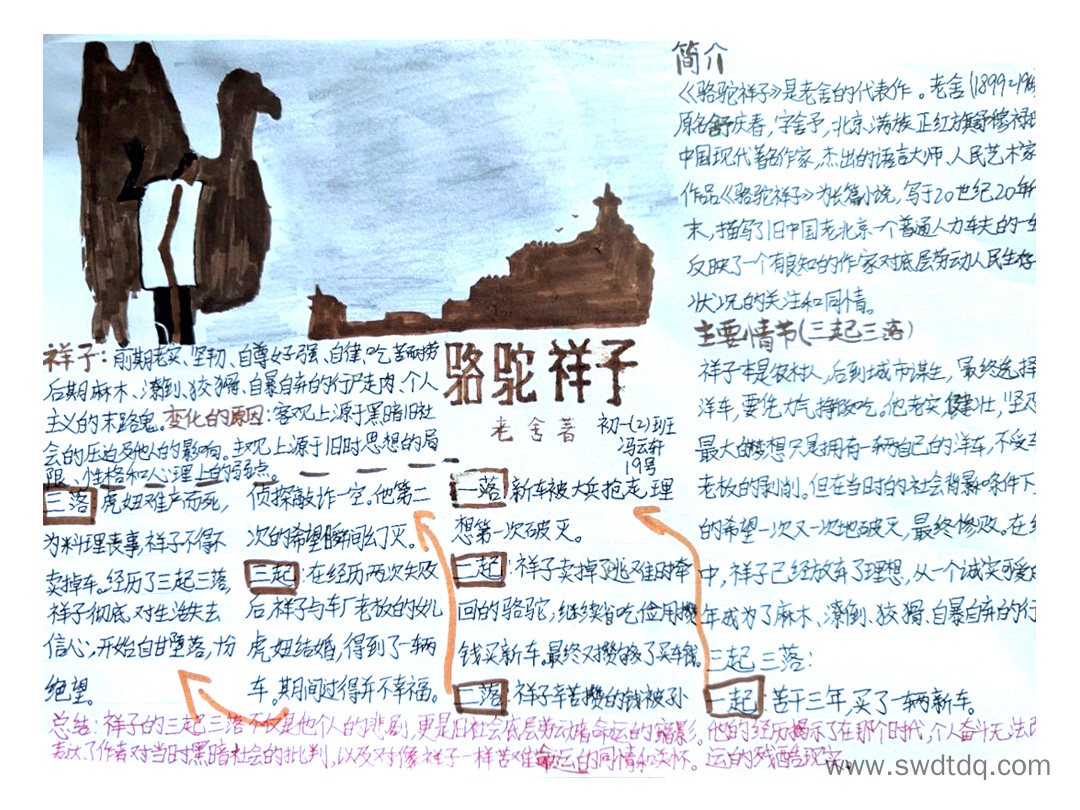 简介
《骆驼祥子》是老舍的代表作。老舍(1899-19
原名舒庆春,字舍予,北京满族正红旗
中国现代著名作家,杰出的语言大师、人民艺术家
作品《骆驼祥子》为长篇小说,写于20世纪20年
末,描写了旧中国老北京一个普通人力车夫的一生
反映了一个有良知的作家对底层劳动人民生存
状况的关注和同情。
主要情节(三起三落)
祥子本是农村人,后到城市谋生,最终选择
洋车,要凭力气挣饭吃。他老实,健壮,坚
最大的梦想只是拥有一辆自己的洋车,不受
老板的剥削。但在当时的社会背景条件下
的希望一次又一次地破灭,最终惨败。在
中,祥子已经放弃了理想,从一个诚实可爱
年成为了麻木、潦倒、狡猾、自暴自弃的行
三起三落:
一起:苦干三年,买了一辆新车。
骆驼祥子
老舍著
初一(2)班
冯云轩
19号
祥子:前期老实、坚韧、自尊好强、自律、吃苦耐劳
后期麻木、潦倒、狡猾、自暴自弃的行尸走肉、个人
主义的末路鬼。变化的原因:客观上源于黑暗旧社
会的压迫及他人的影响。主观上源于旧时思想的局
限、性格和心理上的弱点。
一落 新车被大兵抢走,理
想第一次破灭。
二起:祥子卖掉了逃难时牵
回的骆驼;继续省吃俭用攒
钱买新车。最终又攒够了买车钱。
二落:祥子辛苦攒的钱被孙
侦探敲诈一空。他第二
次的希望瞬间幻灭。
三起:在经历两次失败
后,祥子与车厂老板的女儿
虎妞结婚,得到了一辆
车。期间过得并不幸福。
三落 虎妞难产而死,
为料理丧事,祥子不得不
卖掉车。经历了三起三落,
祥子彻底对生活失去
信心,开始自甘堕落,十分
绝望。
总结:祥子的三起三落不仅是他个人的悲剧,更是旧社会底层劳动者命运的缩影。他的经历揭示了在那个时代,个人奋斗无法改
运的残酷现实。
表达了作者对当时黑暗社会的批判,以及对像祥子一样苦难命运的同情和关怀。
www.swdtdq.com